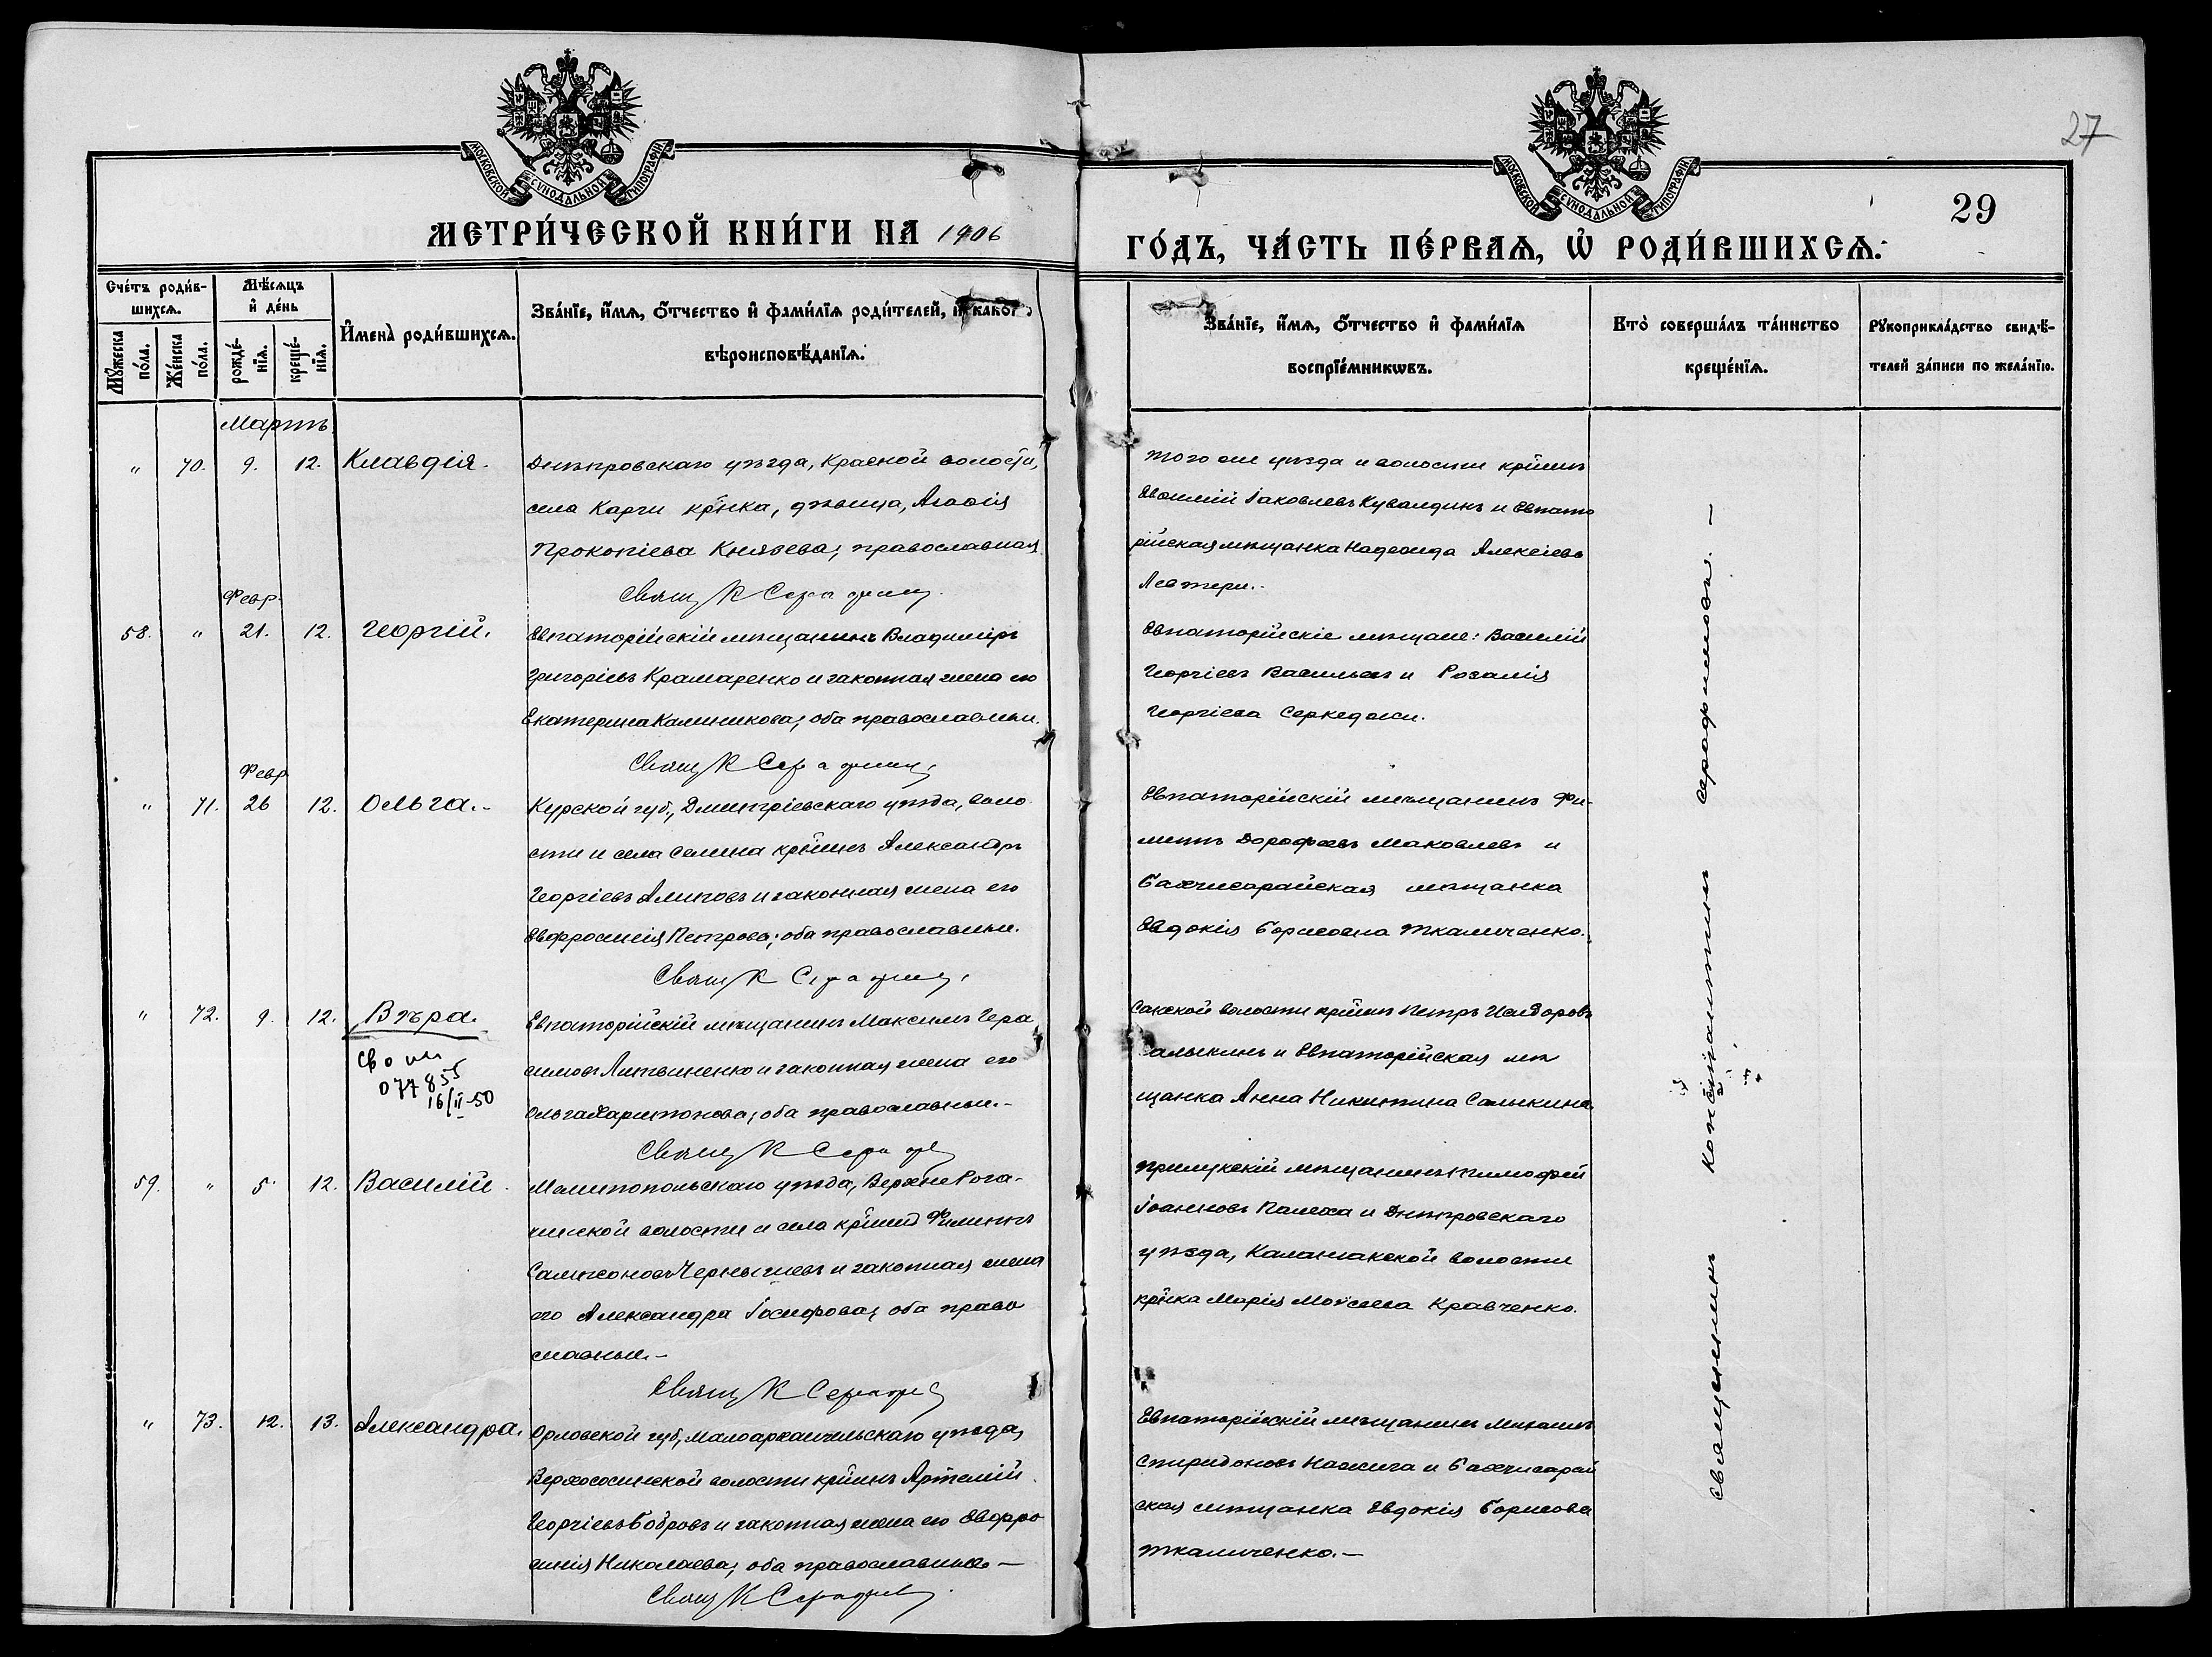 27
29
МОСКОВСКОЙ СУНОДАЛЬНОЙ ТИПОГРАФІИ
МОСКОВСКОЙ СУНОДАЛЬНОЙ ТИПОГРАФІИ
МЕТРИ́ЧЕСКОЙ КНИ́ГИ НА 1906
ГО́ДЪ, ЧА́СТЬ ПЕ́РВАѦ, Ѡ҆ РОДИ́ВШИХСѦ.
Сче́тъ роди́в-
шихсѧ.
Мѣ́сѧцъ
и҆ де́нь
И҆мена̀ роди́вшихсѧ.
Зва́нїе, и҆́мѧ, ѻ҆́тчество и҆ фами́лїѧ роди́телей, и҆ како́гѡ
вѣроисповѣ́данїѧ.
Мꙋ́жеска
по́ла.
Же́нска
по́ла.
рожде́-
нїѧ.
креще́-
нїѧ.
Зва́нїе, и҆́мѧ, ѻ҆́тчество и҆ фами́лїѧ
воспрїе́мникѡвъ.
Кто̀ соверша́лъ та́инство
креще́нїѧ.
Рꙋкоприкла́дство свидѣ́-
телей за́писи по жела́нїю.
Мартъ.
" 70. 9. 12. Клавдія.
Днѣпровскаго уѣзда, Красной волости,
села Карги кр̃нка, дѣвица, Агаѳія
Прокопіева Князева; православная
Свящ К Серафим
того же уѣзда и волости кр̃нинъ
Евѳимій Іаковлевъ Кувалдинъ и Евпато
рійская мѣщанка Надежда Алексіева
Февр.
58. " 21. 12. Георгій.
Евпаторійскій мѣщанинъ Владиміръ
Григоріевъ Крамаренко и законная жена его
Екатерина Калиникова; оба православные.
Свящ К Серафим
Евпаторійскіе мѣщане: Василій
Георгіевъ Васильевъ и Розалія
Георгіева Серкеджи.
Февр
" 71. 26 12. Ольга.-
Курской губ., Дмитріевскаго уѣзда, воло
сти и села Селина кр̃нинъ Александръ
Георгіевъ Алиповъ и законная жена его
Евфросинія Петрова; оба православные.
Свящ К Серафим
Евпаторійскій мѣщанинъ Фи-
липпъ Дорофеевъ Маковлевъ и
Бахчисарайская мѣщанка
Евдокія Борисовна Ткаличенко.
" 72. 9. 12. Вѣра.
077855
16/II-50
Евпаторійскій мѣщанинъ Максимъ Гера
симовъ Литвиненко и законная жена его
Ольга Харитонова; оба православные.-
Свящ К Сераф
Сакской волости кр̃нинъ Петръ Исидоровъ
Салыкинъ и Евпаторійская мѣ
щанка Анна Никитина Салыкина.
59. " 5. 12. Василій.
Мелитопольскаго уѣзда, Верхне Рога-
чикской волости и села кр̃нинъ Филиппъ
Сампсоновъ Чернышевъ и законная жена
его Александра Іосифова; оба право
славные.-
Свящ К Сераф
Прилукскій мѣщанинъ Тимофей
Іоанновъ Палеха и Днѣпровскаго
уѣзда, Каланчакской волости
кр̃нка Марія Моѵсеева Кравченко.
" 73. 12. 13. Александра.
Орловской губ., Малоархангельскаго уѣзда,
Верхососенской волости кр̃нинъ Артемій
Георгіевъ Бобровъ и законная жена его Евфро
синія Николаева; оба православные.-
Свящ К Серафим
Евпаторійскій мѣщанинъ Михаилъ
Спиридоновъ и Бахчисарай
ская мѣщанка Евдокія Борисова
Ткаличенко.-
Священникъ Константинъ Серафимовъ.-